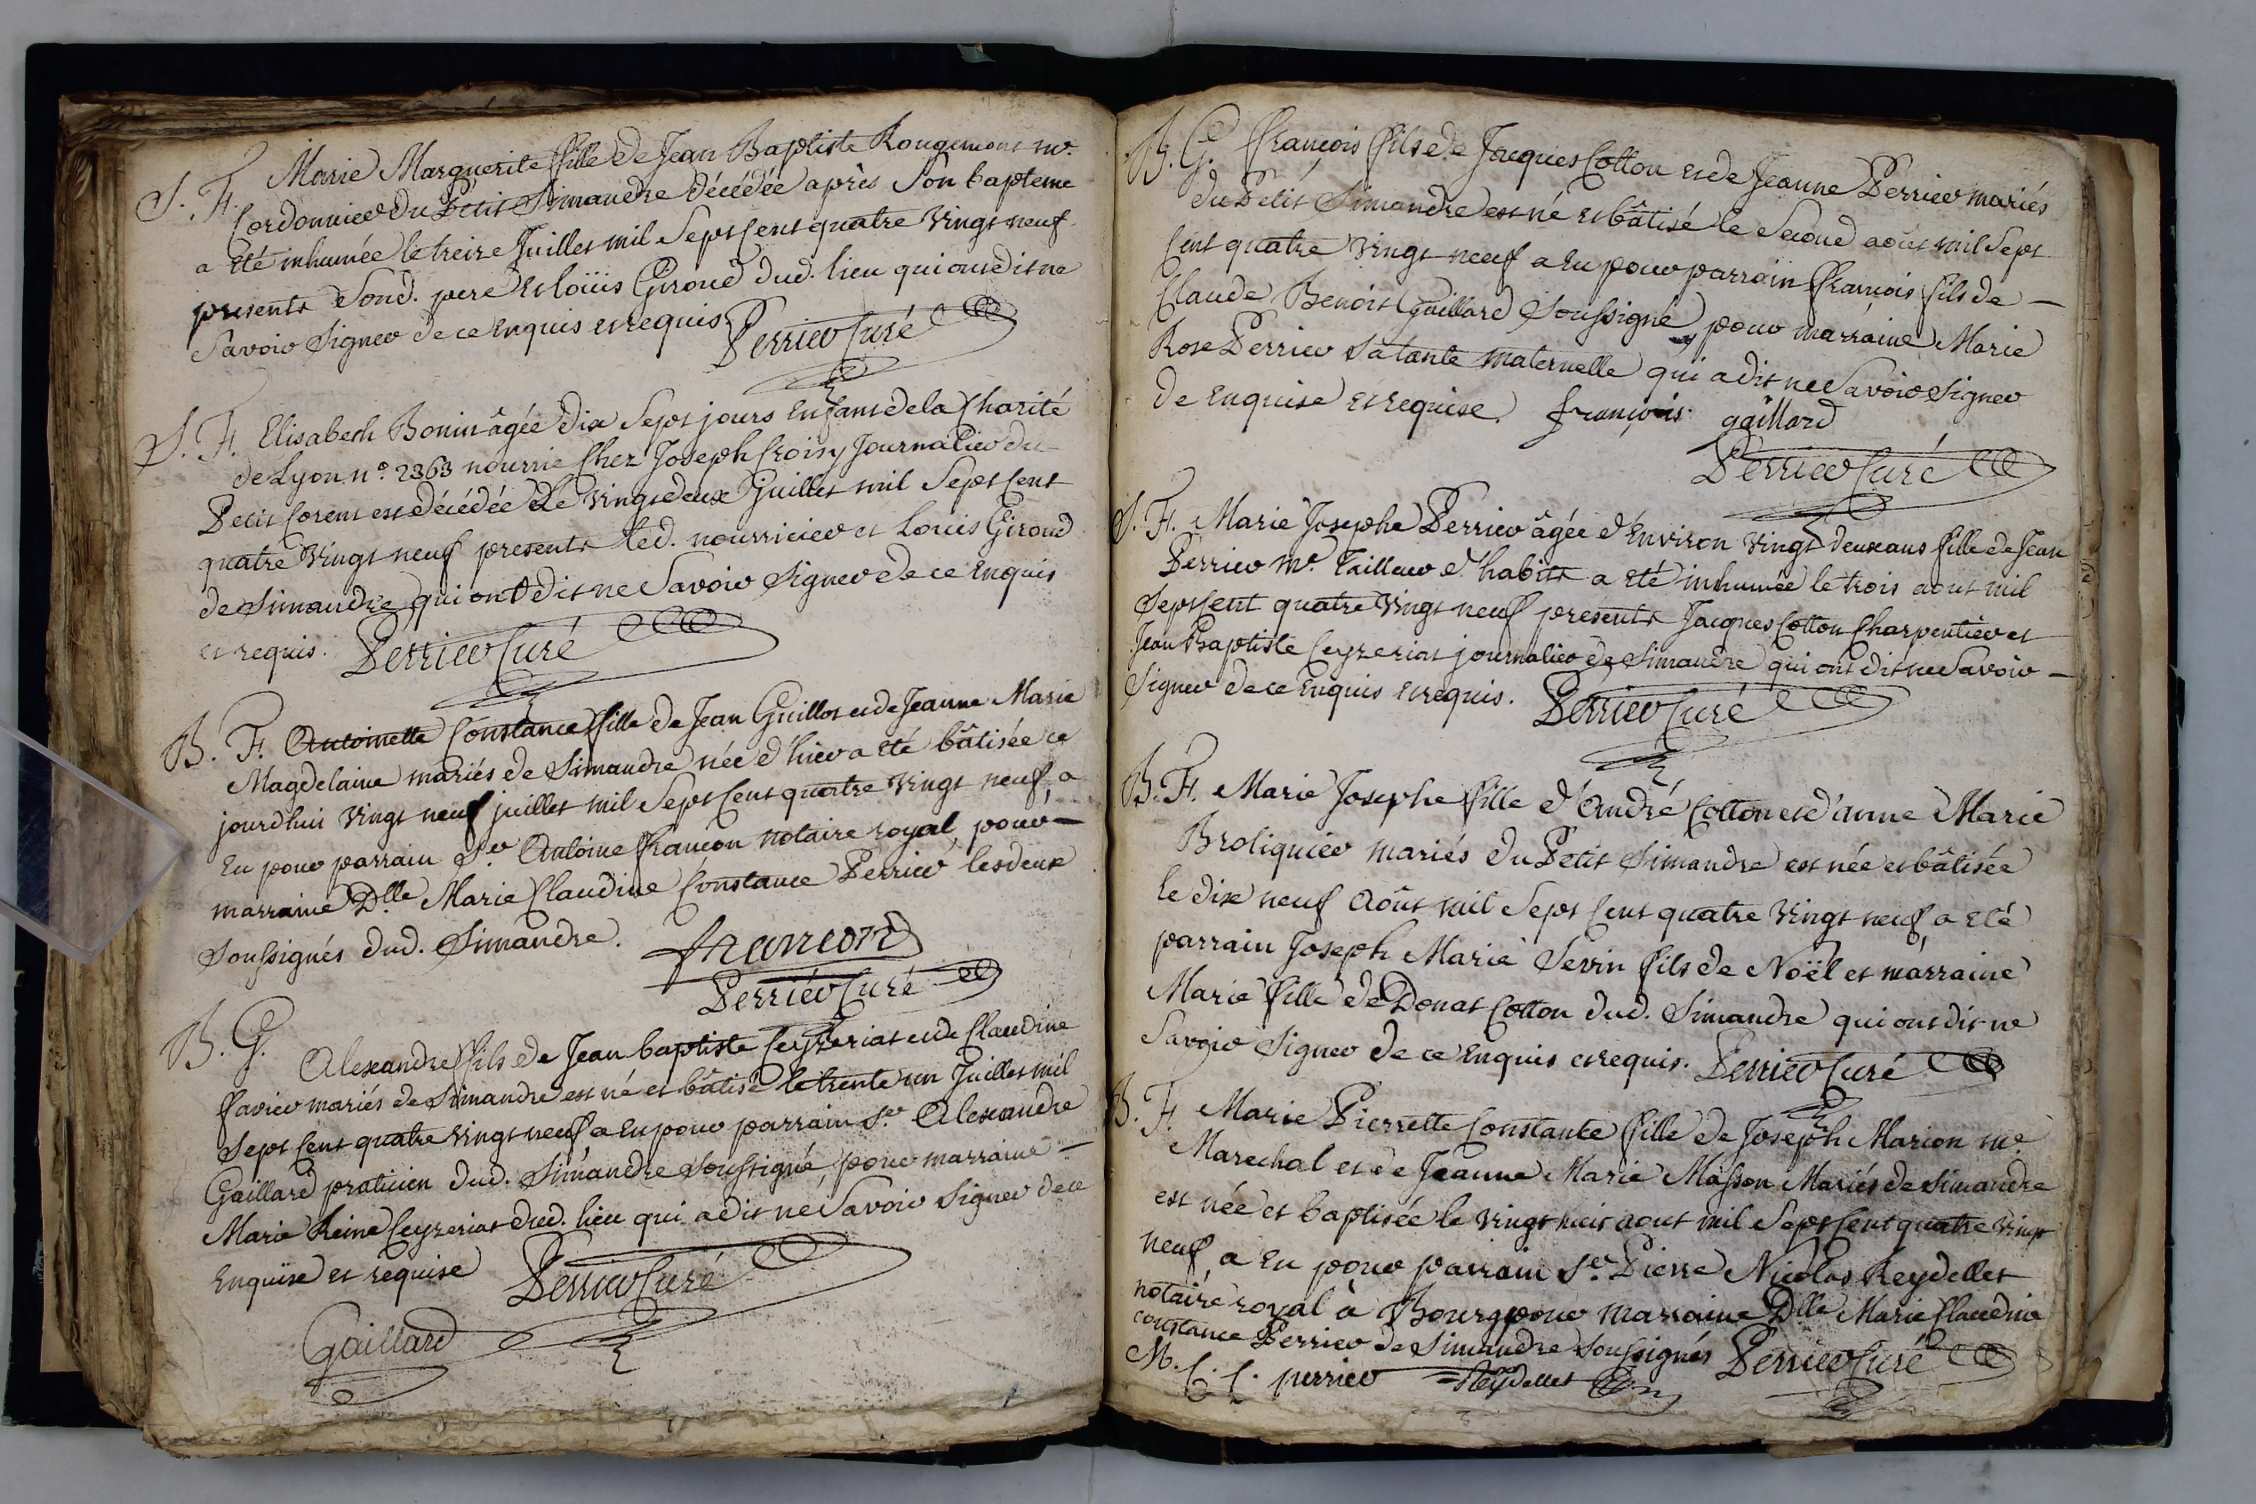 S. F. Marie Marguerite fille de Jean Baptiste Rougemont mc.
Cordonnier du Petit Simandre décédée après son bapteme
a été inhumée le treize Juillet mil sept cent quatre vingt neuf
presents sond. pere et loüis Giroud dud. lieu qui ont dit ne
savoir signer de ce enquis et requis Perrier Curé
S. F. Elisabeth Bonin âgée dix sept jours enfant de la Charité
de Lyon n.° 2363 nourrie chez Joseph Croisy Journalier du
Petit Corent est décédée le vingt deux Juillet mil sept cent
quatre vingt neuf presents led. nourricier et Louis Giroud
de Simandre qui ont dit ne savoir signer de ce enquis
et requis. Perrier Curé
B. F. Antoinette Constance fille de Jean Guillot et de Jeanne Marie
Magdelaine mariés de Simandre née d'hier a été bâtisée ce
jourdhui vingt neuf juillet mil sept cent quatre vingt neuf, a
eu pour parrain Sr. Antoine françon notaire royal, pour
marraine Dlle. Marie Claudine Constance Perrier les deux
soussignés dud. Simandre. françon
Perrier Curé
B. G. Alexandre fils de Jean baptiste Ceyzeriat et de Claudine
favier mariés de Simandre est né et bâtisé le trente un Juillet mil
sept cent quatre vingt neuf a eu pour parrain Sr. Alexandre
Gaillard praticien dud. Simandre soussigné, pour marraine
Marie Reine Ceyzeriat dud. lieu qui a dit ne savoir signer de ce
enquise et requise Perrier Curé
Gaillard
B. G. françois fils de Jacques Cotton et de Jeanne Perrier mariés
du Petit Simandre est né et bâtisé le second août mil sept
cent quatre vingt neuf a eu pour parrain françois fils de
Claude Benoit Gaillard soussigné, pour marraine Marie
Rose Perrier sa tante maternelle qui a dit ne savoir signer
de enquise et requise. françois gaillard
Perrier Curé
S. F. Marie Josephe Perrier âgée d'environ vingt deux ans fille de Jean
Perrier me. Tailleur d'habits a été inhumée le trois aout mil
sept cent quatre vingt neuf presents Jacques Cotton Charpentier et
Jean Baptiste Ceyzeriat journalier de Simandre qui ont dit ne savoir
signer de ce enquis et requis. Perrier Curé
B. F. Marie Josephe fille d'André Cotton et d'anne Marie
Broliquier mariés du Petit Simandre est née et bâtisée
le dix neuf août mil sept cent quatre vingt neuf, a été
parrain Joseph Marie Sevin fils de Noël et marraine
Marie fille de Donat Cotton dud. Simandre qui ont dit ne
savoir signer de ce enquis et requis. Perrier Curé
B. F. Marie Pierrette Constante fille de Joseph Marion me.
Marechal et de Jeanne Marie Masson Mariés de Simandre
est née et baptisée le vingt huit aout mil sept cent quatre vingt
neuf, a eu pour parrain Sr. Pierre Nicolas Reydellet
notaire royal à Bourg pour marraine Dlle. Marie Claudine
constance Perrier de Simandre soussignés Perrier Curé
M. C. C. perrier Reydellet